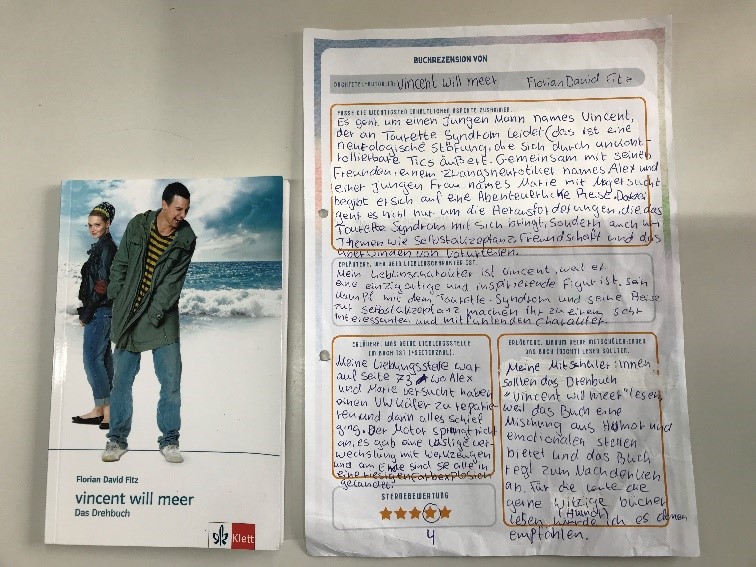 Florian David Fitz
vincent will meer
Das Drehbuch
Klett
BUCHREZENSION VON
BUCHTITEL+AUTOR:IN: vincent will meer Florian David Fitz
FASSE DIE WICHTIGSTEN INHALTLICHEN ASPEKTE ZUSAMMEN.
Es geht um einen Jungen Mann names Vincent,
der an Tourette Syndrom leidet (das ist eine
neurologische Störung, die sich durch unkont-
rollierbare Tics äußert. Gemeinsam mit seinen
Freunden, einem Zwangsneurotiker names Alex und
einer Jungen Frau names Marie mit Magersucht
begibt er sich auf eine Abenteuerliche Reise. Dabei
geht es nicht nur um die Herausforderungen, die das
Tourette Syndrom mit sich bringt, sondern auch um
Themen wie Selbstakzeptanz, Freundschaft und das
überwinden von Vorurteilen.
ERLÄUTERE, WER DEIN LIEBLINGSCHARAKTER IST.
Mein Lieblingscharakter ist vincent, weil er
eine einzigartige und inspirierende Figur ist. Sein
kampf mit dem Tourette-Syndrom und seine Reise
zur selbstakzeptanz machen ihn zu einem sehr
interessanten und mitfühlenden charakter.
ERLÄUTERE, WAS DEINE LIEBLINGSSTELLE
IM BUCH IST (+SEITENZAHL).
Meine Lieblingsstelle war
auf Seite 73 wo Alex
und Marie versucht haben
einen VW Käfer zu reparie-
ren und dann alles schief
ging. Der Motor sprang nicht
an, es gab eine lustige ver
wechslung mit werkzeugen
und am Ende sind sie alle in
eine riesigen Farbexplosion
gelandet!
ERLÄUTERE, WARUM DEINE MITSCHÜLER:INNEN
DAS BUCH (NICHT) LESEN SOLLTEN.
Meine Mitschüler:innen
sollten das Drehbuch
"Vincent will meer" lesen,
weil das Buch eine
Mischung aus Humor und
emotionalen stellen
bietet und das Buch
regt zum Nachdenken
an. Für die Leute die
gerne witzige bücher
(Humor)
lesen würde ich es denen
empfählen.
STERNEBEWERTUNG
4